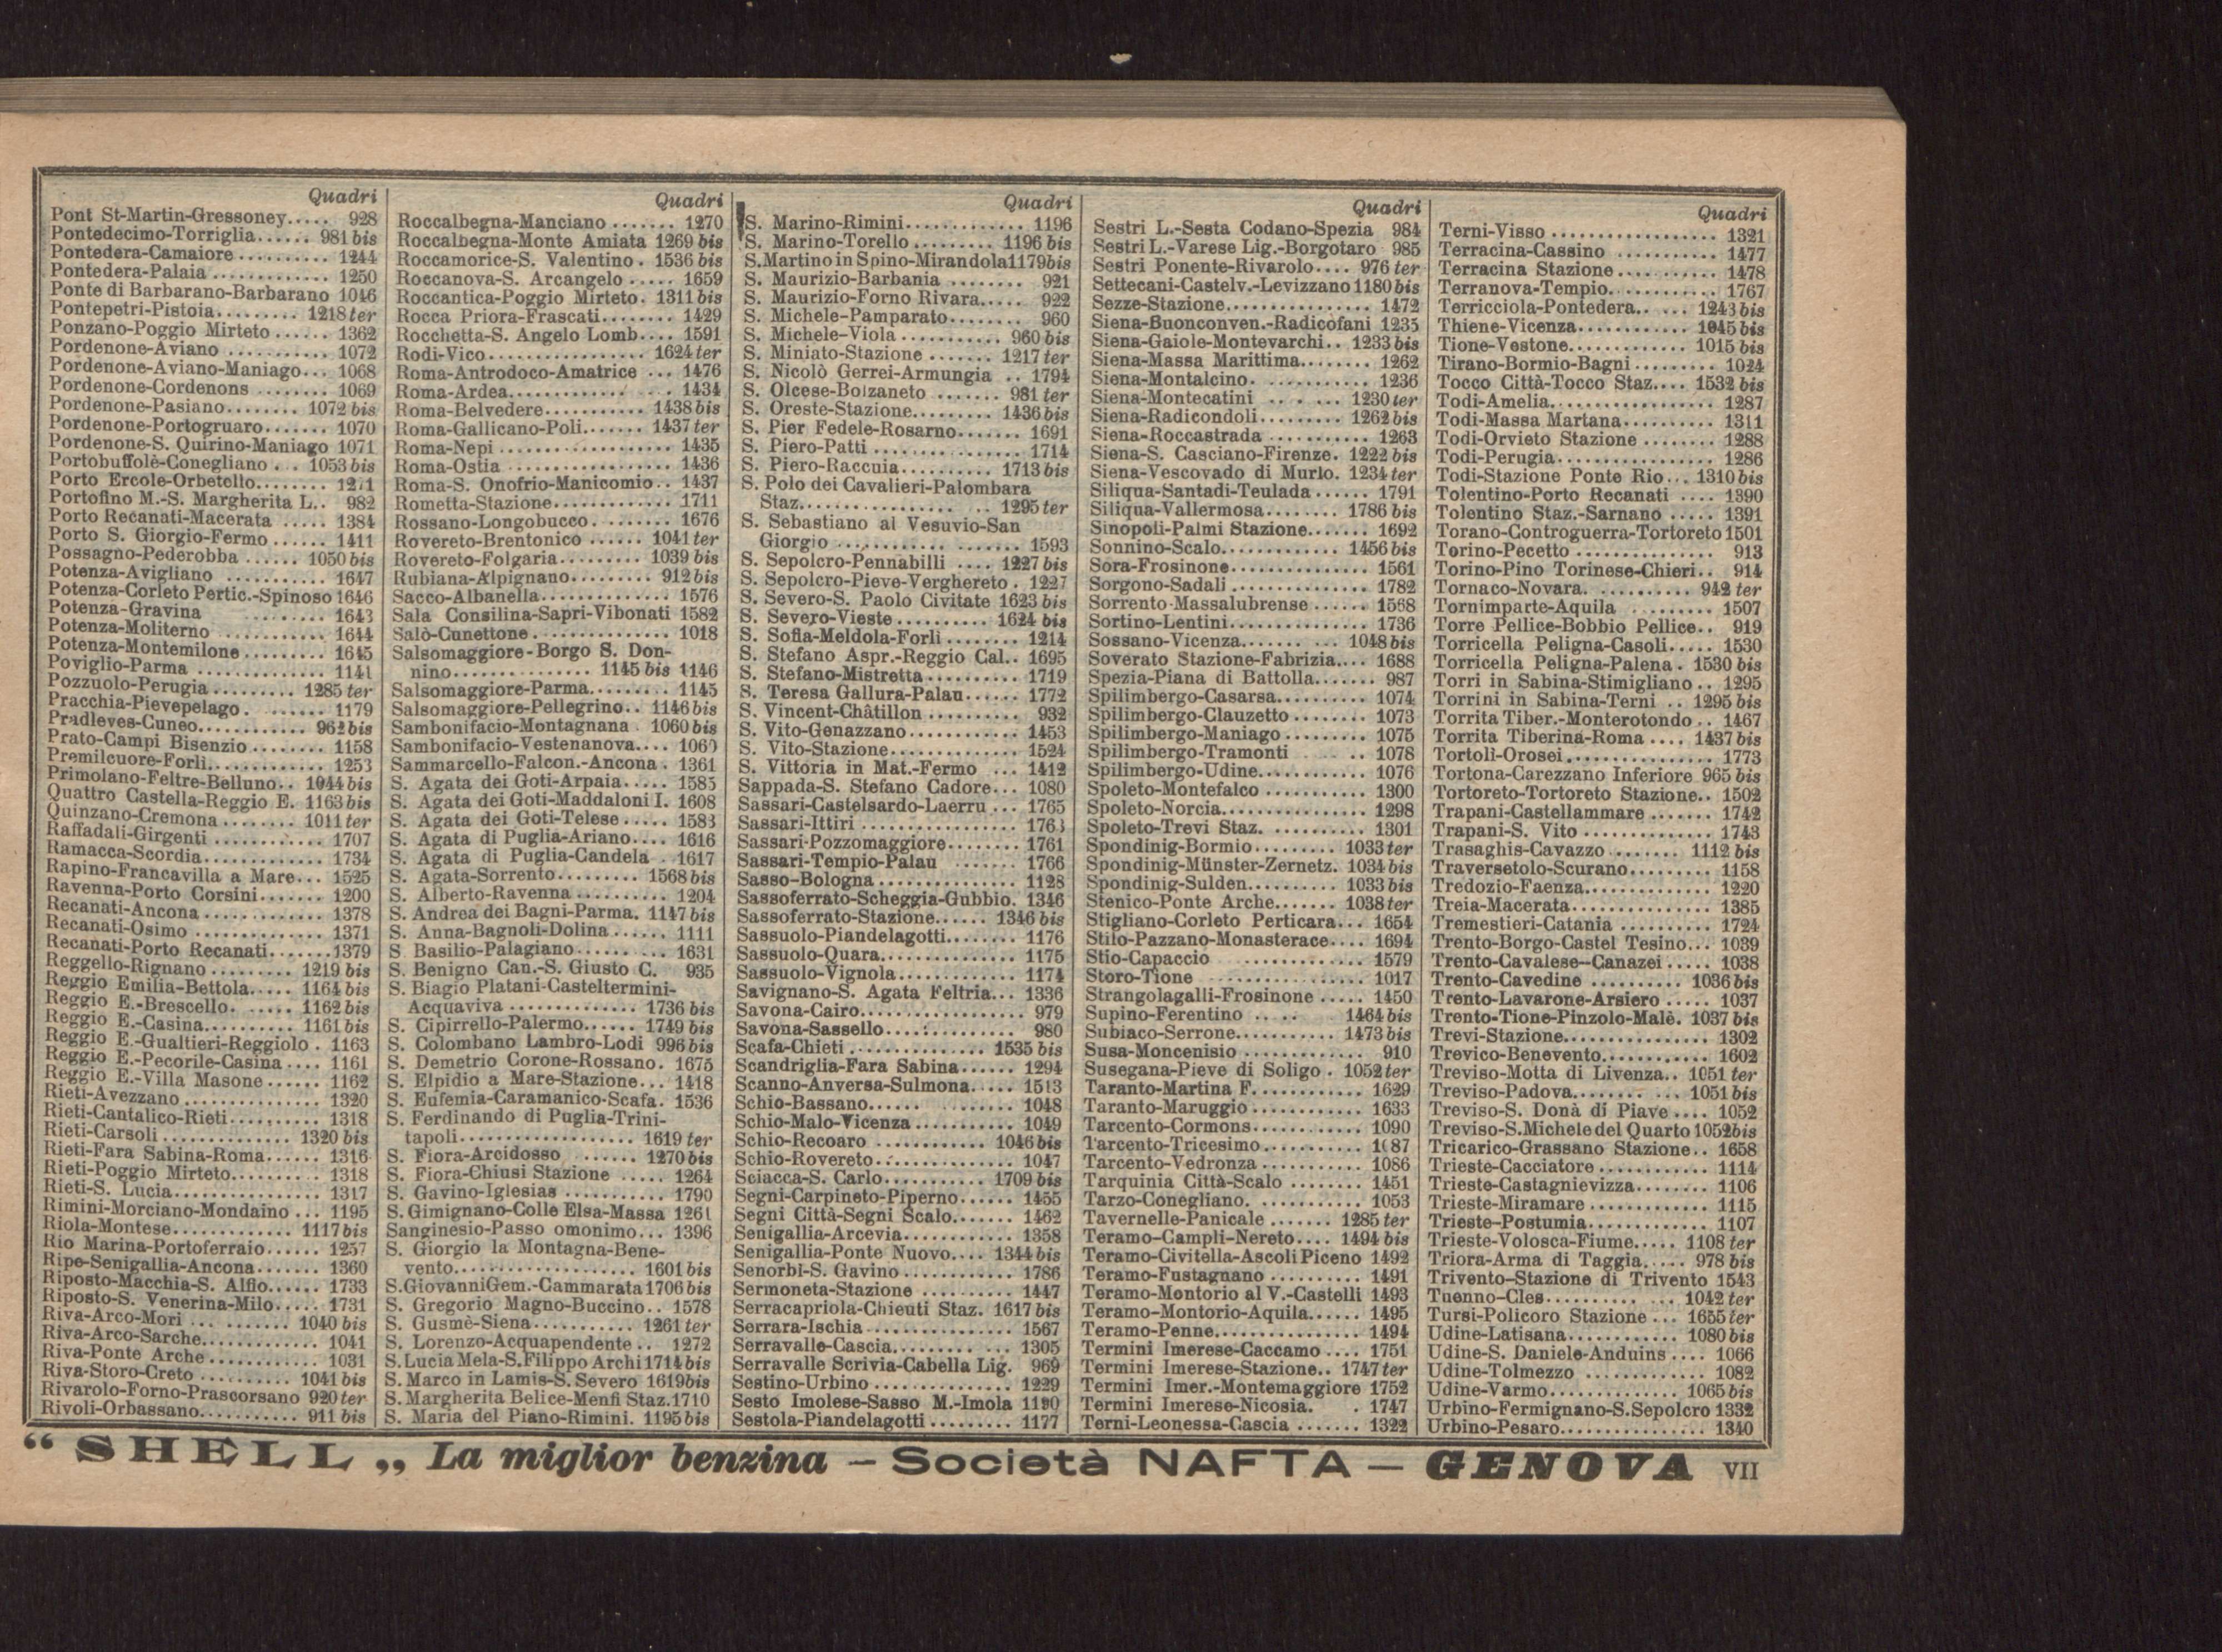 Quadri
Pont St-Martin-Gressoney..... 928
Pontedecimo-Torriglia...... 981 bis
Pontedera-Camaiore.......... 1244
Pontedera-Palaia ............ 1250
Ponte di Barbarano-Barbarano 1046
Pontepetri-Pistoia......... 1218 ter
Ponzano-Poggio Mirteto ...... 1362
Pordenone-Aviano ........... 1072
Pordenone-Aviano-Maniago... 1068
Pordenone-Cordenons ........ 1069
Pordenone-Pasiano........ 1072 bis
Pordenone-Portogruaro....... 1070
Pordenone-S. Quirino-Maniago 1071
Portobuffolè-Conegliano ... 1053 bis
Porto Ercole-Orbetello........
Portofino M.-S. Margherita L.. 982
Porto Recanati-Macerata ..... 1384
Porto S. Giorgio-Fermo ...... 1411
Possagno-Pederobba ...... 1050 bis
Potenza-Avigliano ........... 1647
Potenza-Corleto Pertic.-Spinoso 1646
Potenza-Gravina ......... 1643
Potenza-Moliterno ........... 1644
Potenza-Montemilone......... 1645
Poviglio-Parma .............. 1141
Pozzuolo-Perugia ......... 1285 ter
Pracchia-Pievepelago. ....... 1179
Pradleves-Cuneo............ 962 bis
Prato-Campi Bisenzio ........ 1158
Premilcuore-Forlì............. 1253
Primolano-Feltre-Belluno.. 1044 bis
Quattro Castella-Reggio E. 1163 bis
Quinzano-Cremona ........ 1011 ter
Raffadali-Girgenti ............ 1707
Ramacca-Scordia............. 1734
Rapino-Francavilla a Mare... 1525
Ravenna-Porto Corsini....... 1200
Recanati-Ancona ............. 1378
Recanati-Osimo .............. 1371
Recanati-Porto Recanati....... 1379
Reggello-Rignano ......... 1219 bis
Reggio Emilia-Bettola..... 1164 bis
Reggio E.-Brescello. ..... 1162 bis
Reggio E.-Casina.......... 1161 bis
Reggio E.-Gualtieri-Reggiolo . 1163
Reggio E.-Pecorile-Casina .... 1161
Reggio E.-Villa Masone ...... 1162
Rieti-Avezzano ............... 1320
Rieti-Cantalico-Rieti.......... 1318
Rieti-Carsoli .............. 1320 bis
Rieti-Fara Sabina-Roma...... 1316
Rieti-Poggio Mirteto.......... 1318
Rieti-S. Lucia................ 1317
Rimini-Morciano-Mondaino ... 1195
Riola-Montese............. 1117 bis
Rio Marina-Portoferraio...... 1257
Ripe-Senigallia-Ancona....... 1360
Riposto-Macchia-S. Alfio...... 1733
Riposto-S. Venerina-Milo..... 1731
Riva-Arco-Mori ... ....... 1040 bis
Riva-Arco-Sarche............. 1041
Riva-Ponte Arche............ 1031
Riva-Storo-Creto .......... 1041 bis
Rivarolo-Forno-Prascorsano 920 ter
Rivoli-Orbassano........... 911 bis
Quadri
Roccalbegna-Manciano ....... 1270
Roccalbegna-Monte Amiata 1269 bis
Roccamorice-S. Valentino . 1536 bis
Roccanova-S. Arcangelo ..... 1659
Roccantica-Poggio Mirteto. 1311 bis
Rocca Priora-Frascati........ 1429
Rocchetta-S. Angelo Lomb.... 1591
Rodi-Vico................ 1624 ter
Roma-Antrodoco-Amatrice ... 1476
Roma-Ardea................ 1434
Roma-Belvedere........... 1438 bis
Roma-Gallicano-Poli....... 1437 ter
Roma-Nepi .................. 1435
Roma-Ostia ................. 1436
Roma-S. Onofrio-Manicomio.. 1437
Rometta-Stazione............ 1711
Rossano-Longobucco......... 1676
Rovereto-Brentonico ...... 1041 ter
Rovereto-Folgaria......... 1039 bis
Rubiana-Alpignano......... 912 bis
Sacco-Albanella.............. 1576
Sala Consilina-Sapri-Vibonati 1582
Salò-Cunettone............... 1018
Salsomaggiore-Borgo S. Don-
nino.............. 1145 bis 1146
Salsomaggiore-Parma........ 1145
Salsomaggiore-Pellegrino.. 1146 bis
Sambonifacio-Montagnana . 1060 bis
Sambonifacio-Vestenanova....
Sammarcello-Falcon.-Ancona . 1361
S. Agata dei Goti-Arpaia..... 1585
S. Agata dei Goti-Maddaloni I. 1608
S. Agata dei Goti-Telese ..... 1583
S. Agata di Puglia-Ariano.... 1616
S. Agata di Puglia-Candela . 1617
S. Agata-Sorrento......... 1568 bis
S. Alberto-Ravenna .......... 1204
S. Andrea dei Bagni-Parma. 1147 bis
S. Anna-Bagnoli-Dolina ...... 1111
S Basilio-Palagiano.......... 1631
S. Benigno Can.-S. Giusto C. 935
S. Biagio Platani-Casteltermini-
Acquaviva .............. 1736 bis
S. Cipirrello-Palermo...... 1749 bis
S. Colombano Lambro-Lodi 996 bis
S. Demetrio Corone-Rossano. 1675
S. Elpidio a Mare-Stazione... 1418
S. Eufemia-Caramanico-Scafa. 1536
S. Ferdinando di Puglia-Trini-
tapoli.................. 1619 ter
S. Fiora-Arcidosso ...... 1270 bis
S. Fiora-Chiusi Stazione ..... 1264
S. Gavino-Iglesias ........... 1790
S. Gimignano-Colle Elsa-Massa 1261
Sanginesio-Passo omonimo... 1396
S. Giorgio la Montagna-Bene-
vento................... 1601 bis
S. Giovanni Gem.-Cammarata 1706 bis
S. Gregorio Magno-Buccino.. 1578
S. Gusmè-Siena........... 1261 ter
S. Lorenzo-Acquapendente .. 1272
S. Lucia Mela-S. Filippo Archi 1714 bis
S. Marco in Lamis-S. Severo 1619 bis
S. Margherita Belice-Menfi Staz. 1710
S. Maria del Piano-Rimini. 1195 bis
Quadri
S. Marino-Rimini............. 1196
S. Marino-Torello ......... 1196 bis
S. Martino in Spino-Mirandola 1179 bis
S. Maurizio-Barbania ........ 921
S. Maurizio-Forno Rivara..... 922
S. Michele-Pamparato........ 960
S. Michele-Viola ........... 960 bis
S. Miniato-Stazione ....... 1217 ter
S. Nicolò Gerrei-Armungia .. 1794
S. Olcese-Bolzaneto ....... 981 ter
S. Oreste-Stazione......... 1436 bis
S. Pier Fedele-Rosarno....... 1691
S. Piero-Patti ................ 1714
S. Piero-Raccuia.......... 1713 bis
S. Polo dei Cavalieri-Palombara
Staz................ .. 1295 ter
S. Sebastiano al Vesuvio-San
Giorgio .................... 1593
S. Sepolcro-Pennabilli .... 1227 bis
S. Sepolcro-Pieve-Verghereto . 1227
S. Severo-S. Paolo Civitate 1623 bis
S. Severo-Vieste.......... 1624 bis
S. Sofia-Meldola-Forlì ........ 1214
S. Stefano Aspr.-Reggio Cal.. 1695
S. Stefano-Mistretta.......... 1719
S. Teresa Gallura-Palau...... 1772
S. Vincent-Châtillon .......... 932
S. Vito-Genazzano............ 1453
S. Vito-Stazione.............. 1524
S. Vittoria in Mat.-Fermo ... 1412
Sappada-S. Stefano Cadore... 1080
Sassari-Castelsardo-Laerru ... 1765
Sassari-Ittiri ................. 1763
Sassari-Pozzomaggiore....... 1761
Sassari-Tempio-Palau ..... 1766
Sasso-Bologna............... 1128
Sassoferrato-Scheggia-Gubbio. 1346
Sassoferrato-Stazione...... 1346 bis
Sassuolo-Piandelagotti........ 1176
Sassuolo-Quara.............. 1175
Sassuolo-Vignola............. 1174
Savignano-S. Agata Feltria... 1336
Savona-Cairo................ 979
Savona-Sassello............... 980
Scafa-Chieti ............... 1535 bis
Scandriglia-Fara Sabina...... 1294
Scanno-Anversa-Sulmona..... 1513
Schio-Bassano...... ........ 1048
Schio-Malo-Vicenza .......... 1049
Schio-Recoaro ............ 1046 bis
Schio-Rovereto............... 1047
Sciacca-S. Carlo........... 1709 bis
Segni-Carpineto-Piperno...... 1455
Segni Città-Segni Scalo....... 1462
Senigallia-Arcevia............ 1358
Senigallia-Ponte Nuovo.... 1344 bis
Senorbì-S. Gavino ............ 1786
Sermoneta-Stazione .......... 1447
Serracapriola-Chieuti Staz. 1617 bis
Serrara-Ischia................ 1567
Serravalle-Cascia............. 1305
Serravalle Scrivia-Cabella Lig. 969
Sestino-Urbino ............... 1229
Sesto Imolese-Sasso M.-Imola 1190
Sestola-Piandelagotti ......... 1177
Quadri
Sestri L.-Sesta Codano-Spezia 984
Sestri L.-Varese Lig.-Borgotaro 985
Sestri Ponente-Rivarolo.... 976 ter
Settecani-Castelv.-Levizzano 1180 bis
Sezze-Stazione............... 1472
Siena-Buonconven.-Radicofani 1235
Siena-Gaiole-Montevarchi.. 1233 bis
Siena-Massa Marittima........ 1262
Siena-Montalcino. ........... 1236
Siena-Montecatini ........ 1230 ter
Siena-Radicondoli......... 1262 bis
Siena-Roccastrada ........... 1263
Siena-S. Casciano-Firenze. 1222 bis
Siena-Vescovado di Murlo. 1234 ter
Siliqua-Santadi-Teulada ...... 1791
Siliqua-Vallermosa........ 1786 bis
Sinopoli-Palmi Stazione....... 1692
Sonnino-Scalo............. 1456 bis
Sora-Frosinone............... 1561
Sorgono-Sadali ............... 1782
Sorrento-Massalubrense ...... 1568
Sortino-Lentini............... 1736
Sossano-Vicenza.......... 1048 bis
Soverato Stazione-Fabrizia.... 1688
Spezia-Piana di Battolla....... 987
Spilimbergo-Casarsa.......... 1074
Spilimbergo-Clauzetto ........ 1073
Spilimbergo-Maniago ......... 1075
Spilimbergo-Tramonti .. 1078
Spilimbergo-Udine............ 1076
Spoleto-Montefalco ........... 1300
Spoleto-Norcia............... 1298
Spoleto-Trevi Staz. .......... 1301
Spondinig-Bormio......... 1033 ter
Spondinig-Münster-Zernetz. 1034 bis
Spondinig-Sulden.......... 1033 bis
Stenico-Ponte Arche....... 1038 ter
Stigliano-Corleto Perticara... 1654
Stilo-Pazzano-Monasterace.... 1694
Stio-Capaccio ............ 1579
Storo-Tione .............. 1017
Strangolagalli-Frosinone ..... 1450
Supino-Ferentino ..... 1464 bis
Subiaco-Serrone........... 1473 bis
Susa-Moncenisio ............. 910
Susegana-Pieve di Soligo . 1052 ter
Taranto-Martina F............ 1629
Taranto-Maruggio............ 1633
Tarcento-Cormons........... 1090
Tarcento-Tricesimo........... 1087
Tarcento-Vedronza ........... 1086
Tarquinia Città-Scalo ........ 1451
Tarzo-Conegliano. ........... 1053
Tavernelle-Panicale ....... 1285 ter
Teramo-Campli-Nereto.... 1494 bis
Teramo-Civitella-Ascoli Piceno 1492
Teramo-Fustagnano .......... 1491
Teramo-Montorio al V.-Castelli 1493
Teramo-Montorio-Aquila...... 1495
Teramo-Penne................ 1494
Termini Imerese-Caccamo .... 1751
Termini Imerese-Stazione.. 1747 ter
Termini Imer.-Montemaggiore 1752
Termini Imerese-Nicosia. . 1747
Terni-Leonessa-Cascia ....... 1322
Quadri
Terni-Visso .................. 1321
Terracina-Cassino ........... 1477
Terracina Stazione ........... 1478
Terranova-Tempio............ 1767
Terricciola-Pontedera.. ... 1243 bis
Thiene-Vicenza............ 1045 bis
Tione-Vestone............. 1015 bis
Tirano-Bormio-Bagni ......... 1024
Tocco Città-Tocco Staz.... 1532 bis
Todi-Amelia.................. 1287
Todi-Massa Martana.......... 1311
Todi-Orvieto Stazione ........ 1288
Todi-Perugia................. 1286
Todi-Stazione Ponte Rio... 1310 bis
Tolentino-Porto Recanati .... 1390
Tolentino Staz.-Sarnano ..... 1391
Torano-Controguerra-Tortoreto 1501
Torino-Pecetto ............... 913
Torino-Pino Torinese-Chieri.. 914
Tornaco-Novara. .......... 942 ter
Tornimparte-Aquila ......... 1507
Torre Pellice-Bobbio Pellice.. 919
Torricella Peligna-Casoli..... 1530
Torricella Peligna-Palena . 1530 bis
Torri in Sabina-Stimigliano .. 1295
Torrini in Sabina-Terni .. 1295 bis
Torrita Tiber.-Monterotondo .. 1467
Torrita Tiberina-Roma .... 1437 bis
Tortolì-Orosei................ 1773
Tortona-Carezzano Inferiore 965 bis
Tortoreto-Tortoreto Stazione.. 1502
Trapani-Castellammare ....... 1742
Trapani-S. Vito .............. 1743
Trasaghis-Cavazzo........ 1112 bis
Traversetolo-Scurano......... 1158
Tredozio-Faenza.............. 1220
Treia-Macerata............... 1385
Tremestieri-Catania .......... 1724
Trento-Borgo-Castel Tesino... 1039
Trento-Cavalese-Canazei ..... 1038
Trento-Cavedine .......... 1036 bis
Trento-Lavarone-Arsiero ..... 1037
Trento-Tione-Pinzolo-Malè. 1037 bis
Trevi-Stazione................ 1302
Trevico-Benevento............ 1602
Treviso-Motta di Livenza.. 1051 ter
Treviso-Padova........ ... 1051 bis
Treviso-S. Donà di Piave .... 1052
Treviso-S. Michele del Quarto 1052 bis
Tricarico-Grassano Stazione.. 1658
Trieste-Cacciatore ............ 1114
Trieste-Castagnievizza........ 1106
Trieste-Miramare ............. 1115
Trieste-Postumia............. 1107
Trieste-Volosca-Fiume..... 1108 ter
Triora-Arma di Taggia..... 978 bis
Trivento-Stazione di Trivento 1543
Tuenno-Cles.......... ... 1042 ter
Tursi-Policoro Stazione ... 1655 ter
Udine-Latisana............ 1080 bis
Udine-S. Daniele-Anduins .... 1066
Udine-Tolmezzo ............. 1082
Udine-Varmo.............. 1065 bis
Urbino-Fermignano-S. Sepolcro 1332
Urbino-Pesaro................ 1340
“ SHELL „ La miglior benzina – Società NAFTA – GENOVA VII